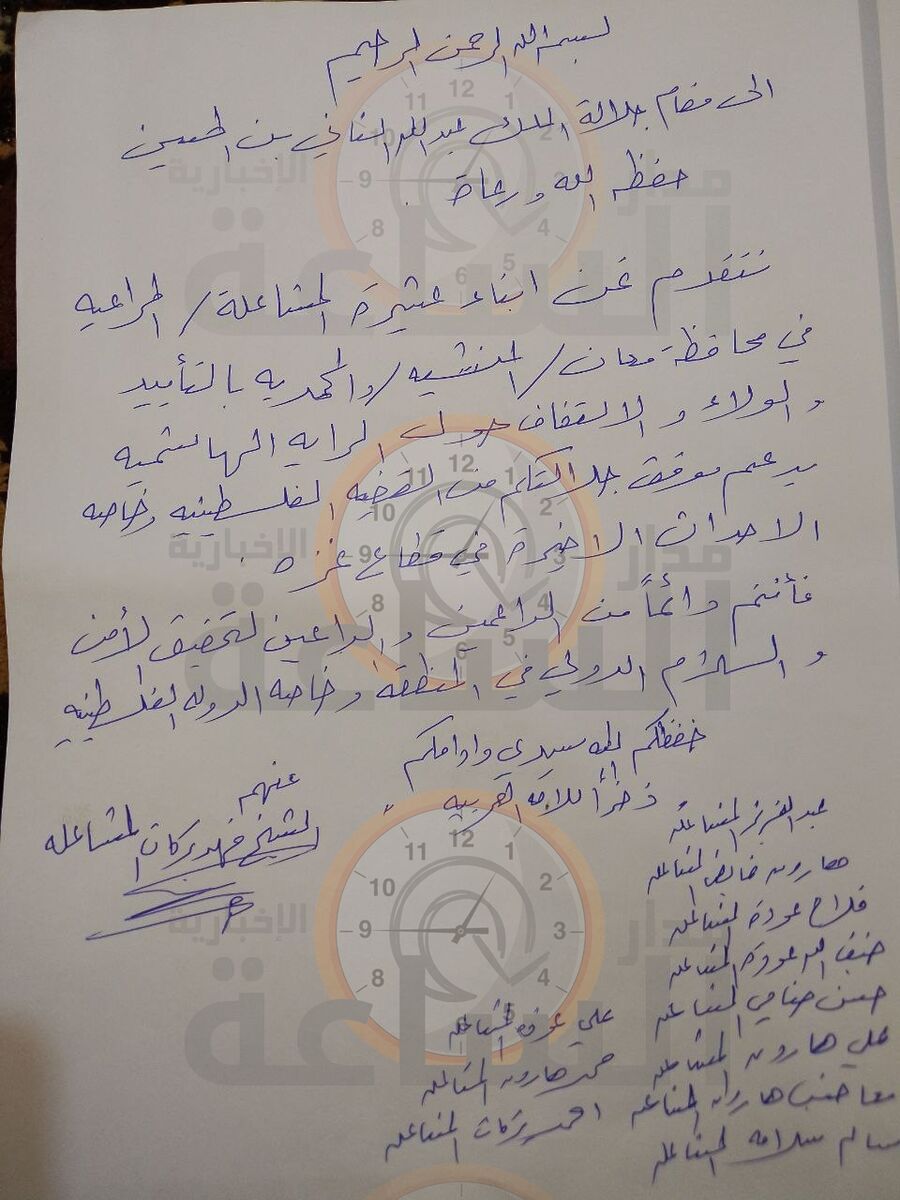 بسم الله الرحمن الرحيم
الى مقام جلالة الملك عبدالله الثاني بن الحسين
حفظه الله ورعاه
نتقدم نحن ابناء عشيرة المشاعلة / المراعيه
في محافظة معان / المنشيه / والمحمديه بالتأييد
والولاء والالتفاف حول الرايه الهاشميه
بدعم موقف جلالتكم من القضيه الفلسطينيه وخاصه
الاحداث الاخيرة في قطاع غزه .
فأنتم دائماً من الداعمين والداعين لتحقيق الأمن
والسلام الدولي في المنطقه وخاصه الدوله الفلسطينيه
حفظكم الله سيدي وادامكم
ذخراً للامه العربيه
عنهم
الشيخ فهد بركات المشاعله
عبدالعزيز المشاعله
هارون فايض المشاعله
فلاح عودة المشاعله
ضيف الله عودة المشاعله
حسن المشاعله
علي هارون المشاعله
هارون المشاعله
سالم سلامه المشاعله
علي عوده المشاعله
حمد هارون المشاعله
احمد بركات المشاعله
مدار
الساعة
الإخبارية
12
1
2
3
4
5
6
8
9
10
11